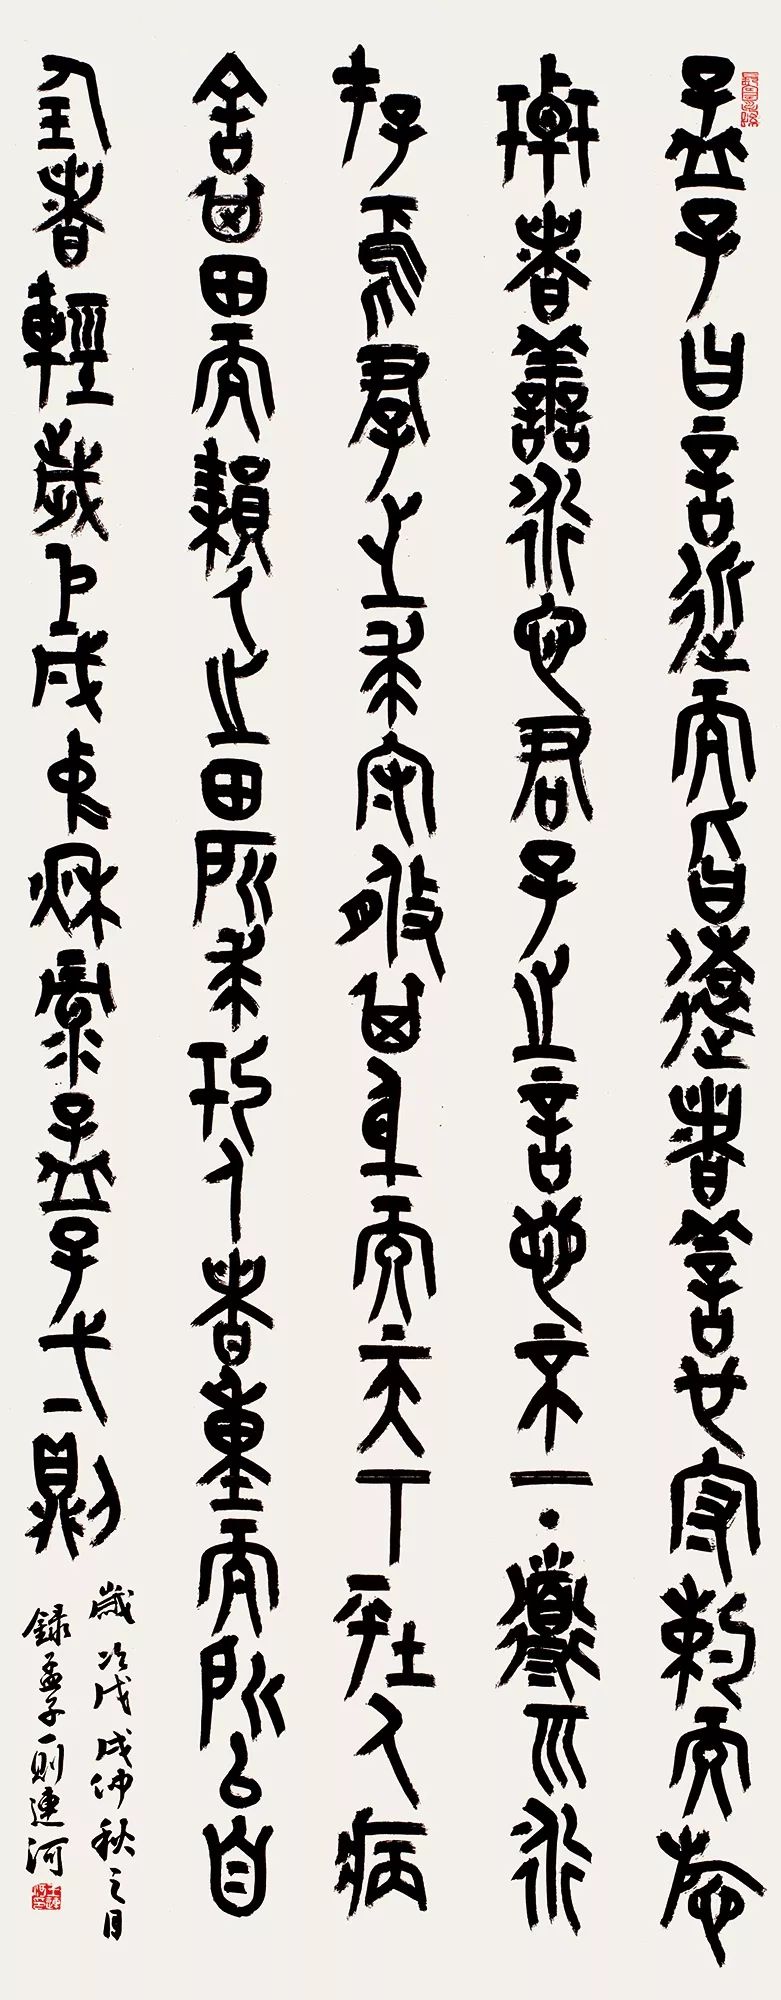 孟子曰言近而旨遠者善言也守約而施
博者善道也君子之言也不下帶而道
存焉君子之守修其身而天下平人病
舍其田而耘人之田所求於人者重而所以自
任者輕歲戊戌秋录孟子弌則
歲次戊戌仲秋之月
錄孟子一則連河